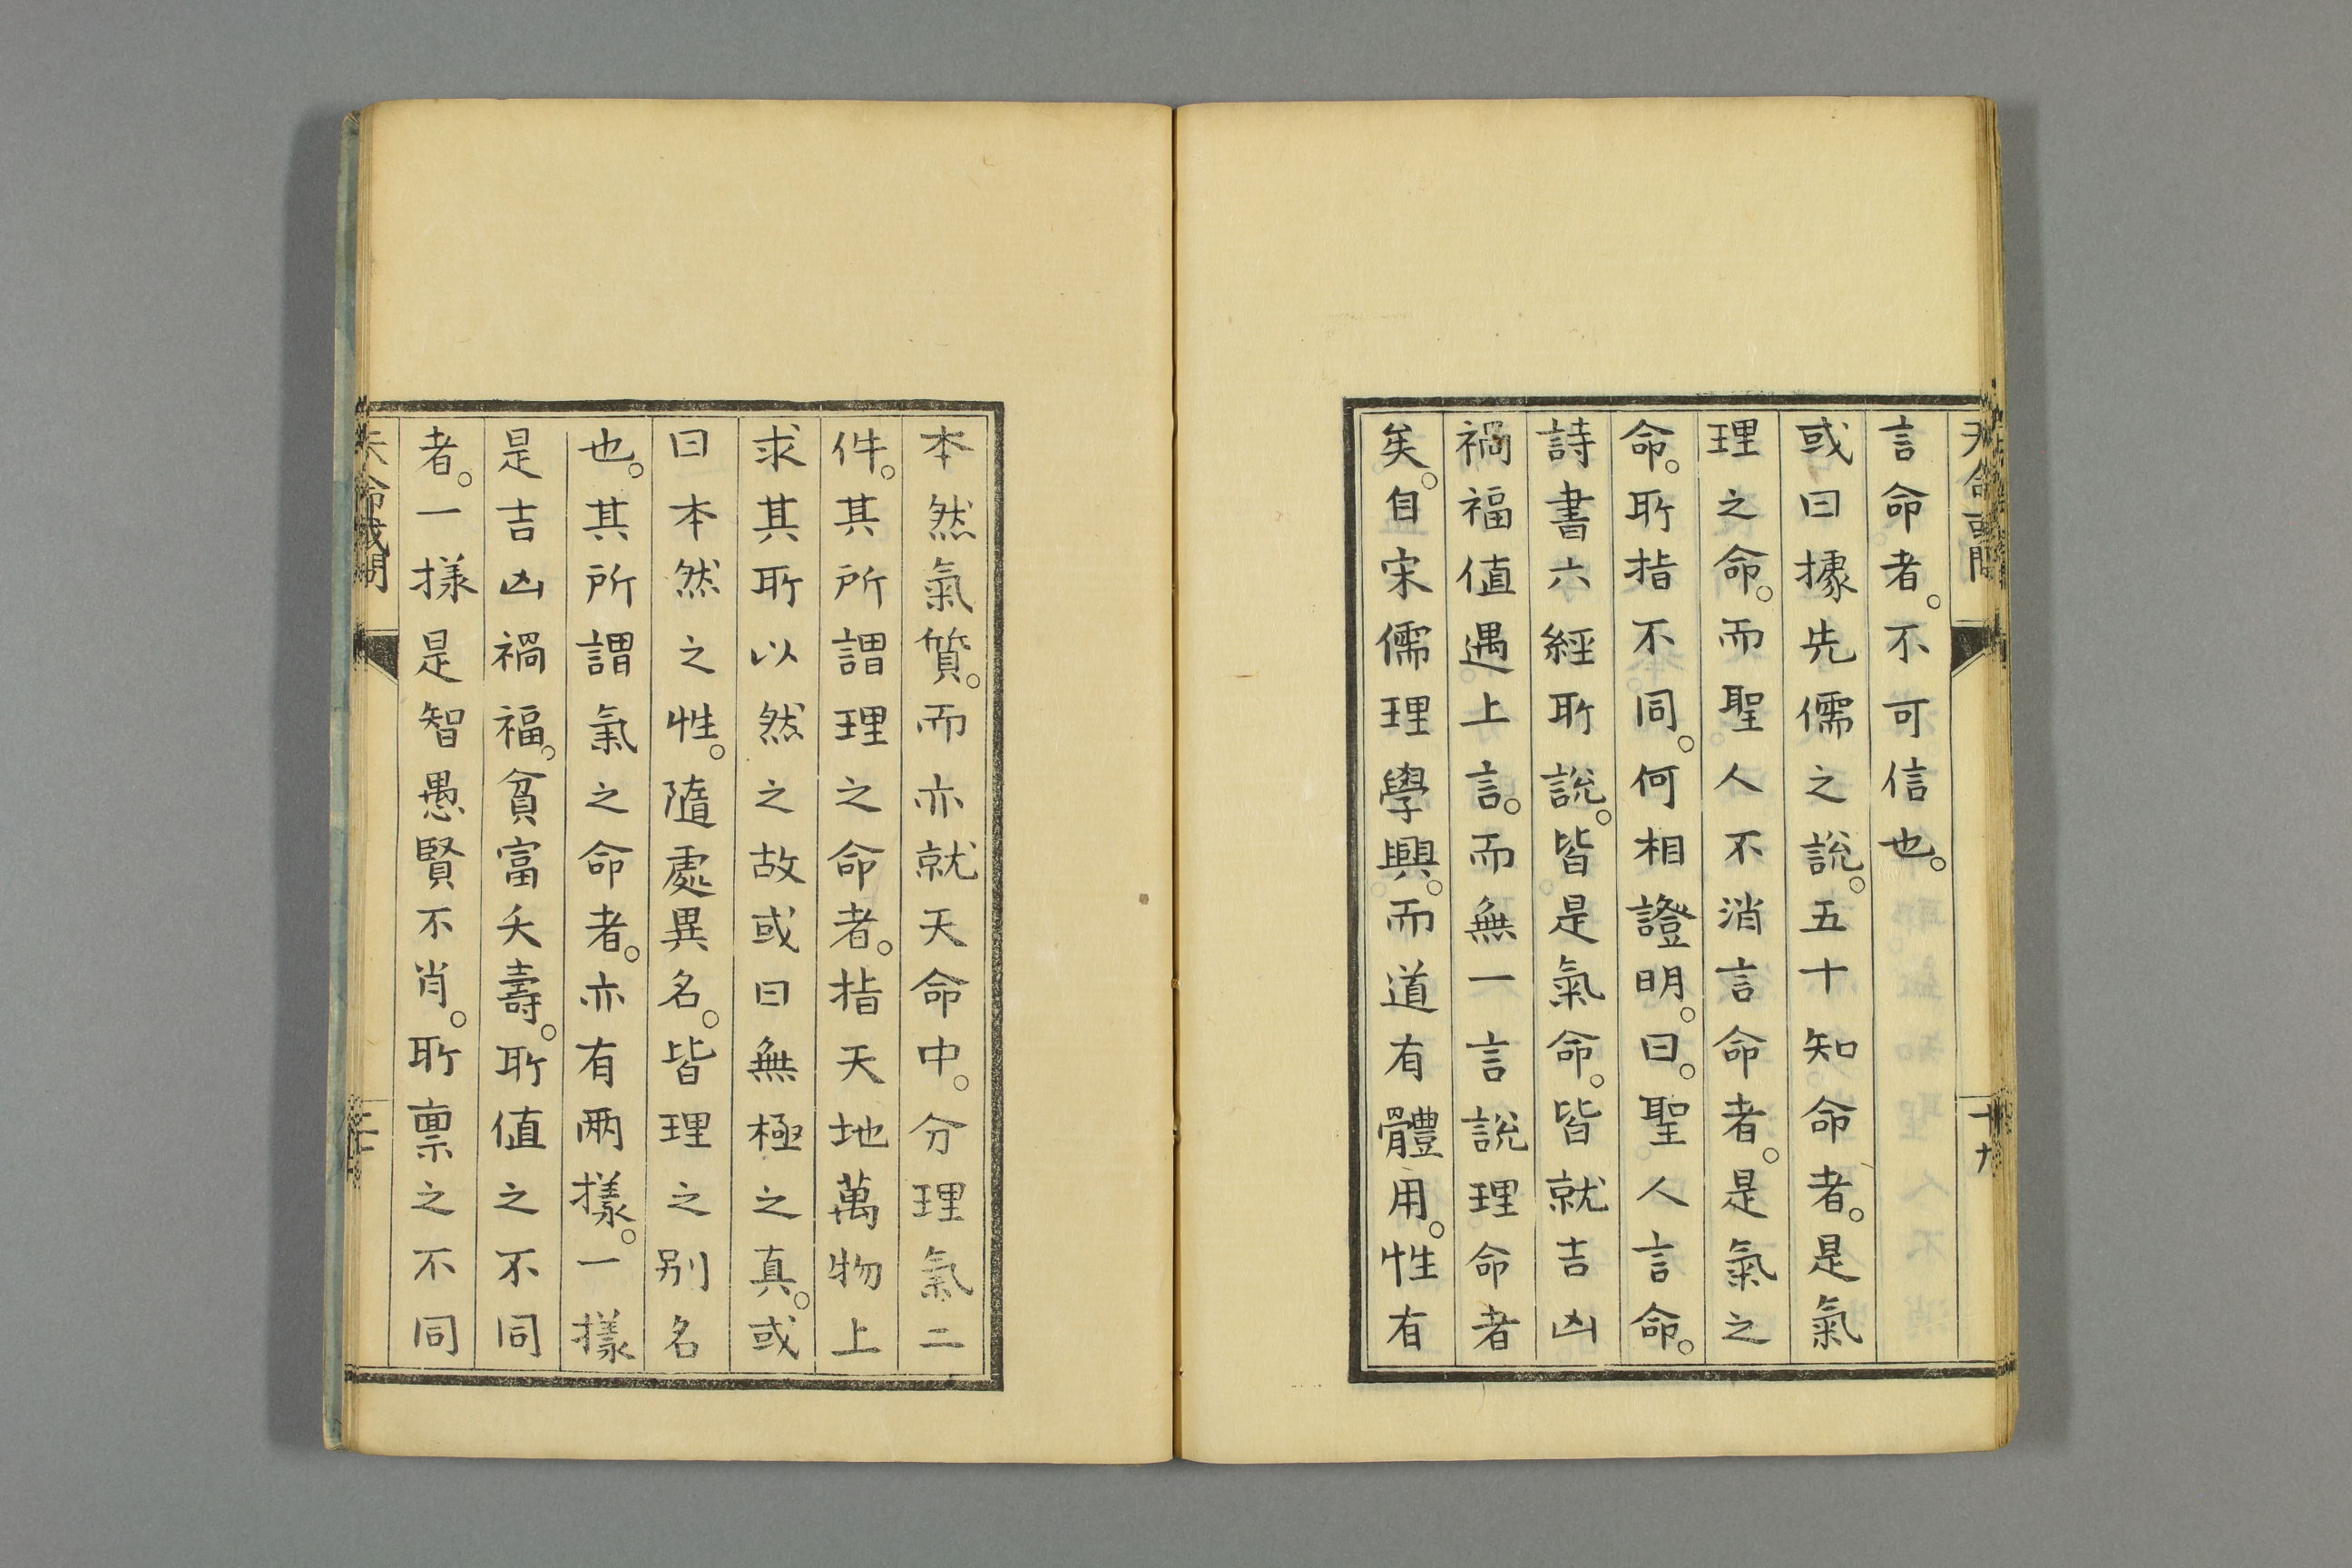 天命或問
十九
言命者。不可信也。
或曰據先儒之說。五十知命者。是氣
理之命。而聖人不消言命者。是氣之
命。所指不同。何相證明。曰。聖人言命。
詩書六經所說。皆是氣命。皆就吉凶
禍福値遇上言。而無一言說理命者
矣。自宋儒理學興。而道有體用。性有
本然氣質。而亦就天命中。分理氣二
件。其所謂理之命者。指天地萬物上
求其所以然之故或曰無極之真。或
曰本然之性。隨處異名。皆理之别名
也。其所謂氣之命者。亦有兩樣。一樣
是吉凶禍福。貧富夭壽。所値之不同
者。一樣是智愚賢不肖。所禀之不同
天命或問